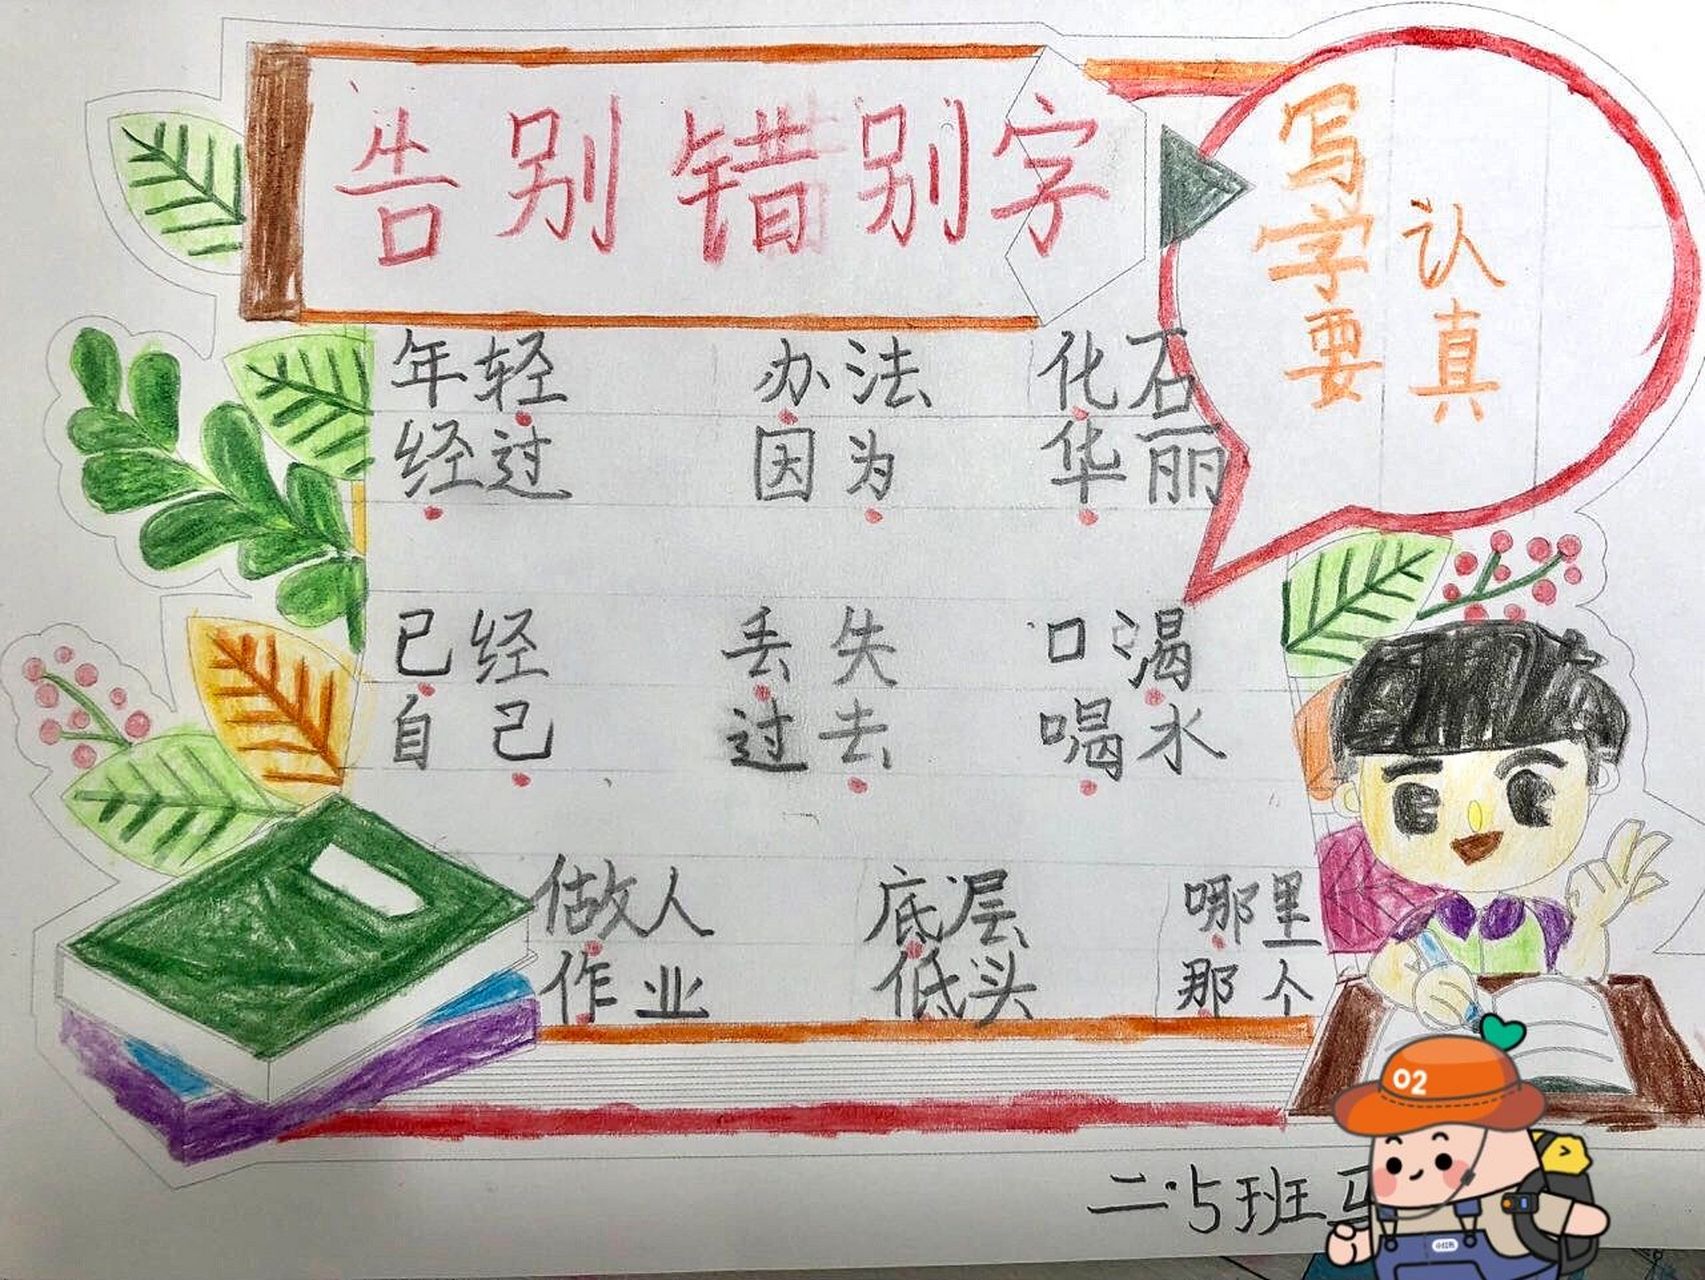 告别错别字
写字要
认真
年轻 办法 化石
经过 因为 华丽
已经 丢失 口渴
自己 过去 喝水
做人 底层 哪里
作业 低头 那个
二.5班
02
小红书